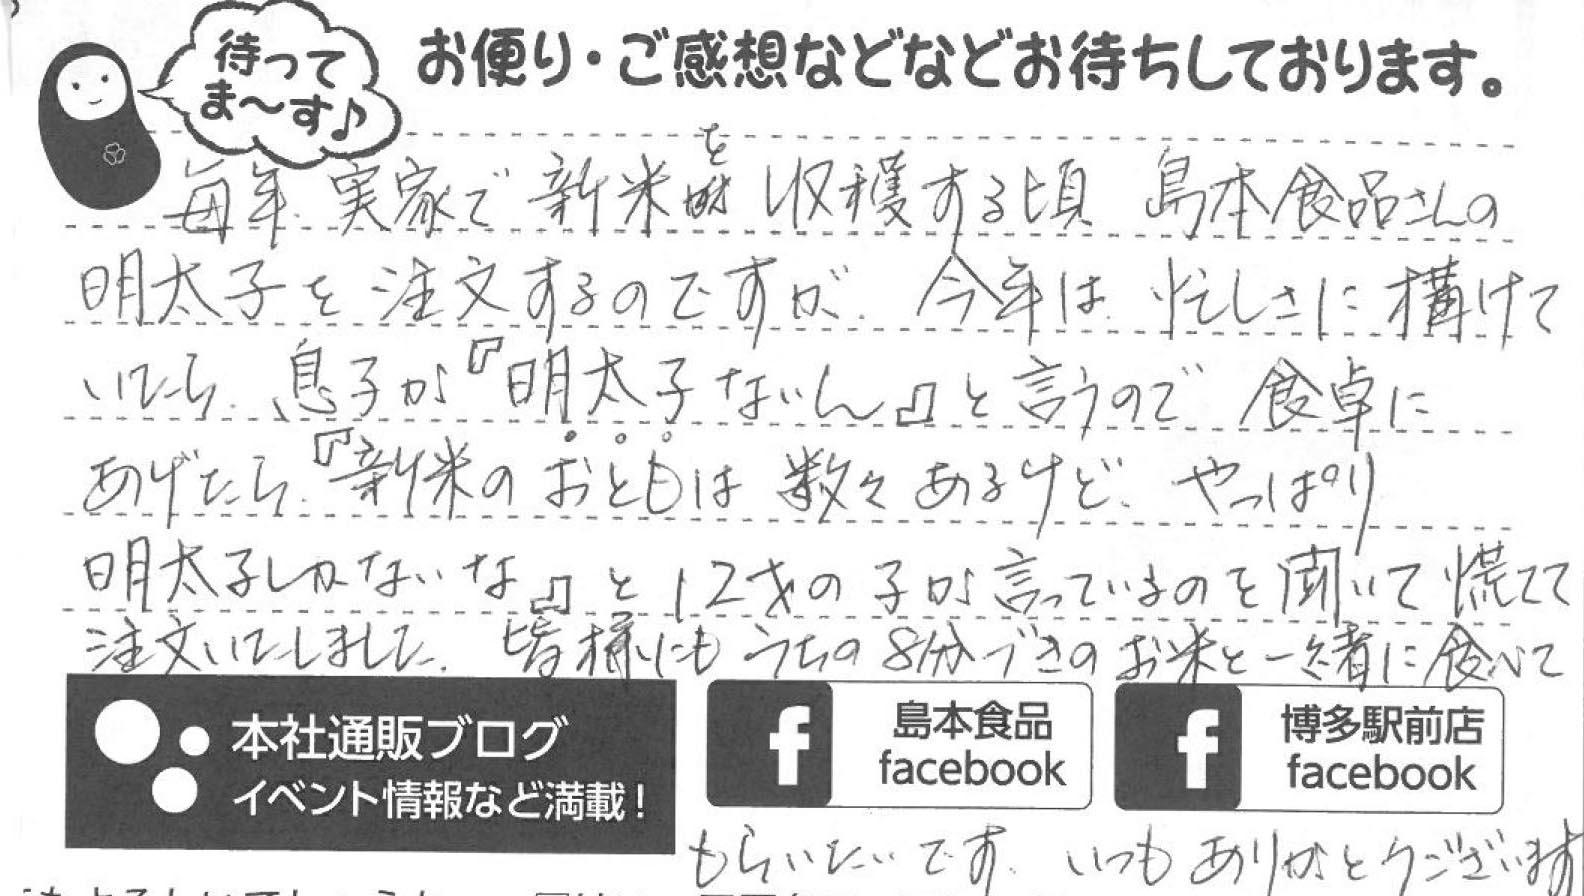 待って
ま～す♪
お便り・ご感想などなどお待ちしております。
毎年 実家で 新米を 収穫する頃 島本食品さんの
明太子を 注文するのですが、今年は 忙しさに 構けて
いたら、息子が『明太子ないん』と 言うので 食卓に
あげたら、『新米の おともは 数々あるけど、やっぱり
明太子しかないな』と 12才の子が 言っているのを 聞いて 慌てて
注文いたしました。皆様にも うちの 8分づきの お米と一緒に 食べて
本社通販ブログ
イベント情報など満載！
f
島本食品
facebook
f
博多駅前店
facebook
もらいたいです。いつも ありがとうございます